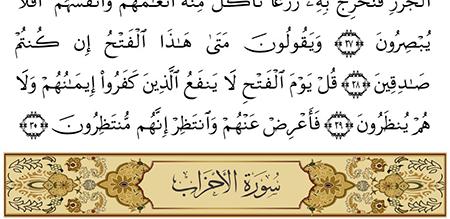 ٱلۡجُرُزِ فَنُخۡرِجُ بِهِۦ زَرۡعٗا تَأۡكُلُ مِنۡهُ أَنۡعَٰمُهُمۡ وَأَنفُسُهُمۡۚ أَفَلَا
يُبۡصِرُونَ ﴿٢٧﴾ وَيَقُولُونَ مَتَىٰ هَٰذَا ٱلۡفَتۡحُ إِن كُنتُمۡ
صَٰدِقِينَ ﴿٢٨﴾ قُلۡ يَوۡمَ ٱلۡفَتۡحِ لَا يَنفَعُ ٱلَّذِينَ كَفَرُوٓاْ إِيمَٰنُهُمۡ وَلَا
هُمۡ يُنظَرُونَ ﴿٢٩﴾ فَأَعۡرِضۡ عَنۡهُمۡ وَٱنتَظِرۡ إِنَّهُم مُّنتَظِرُونَ ﴿٣٠﴾
سُورَةُ الأَحْزَابِ